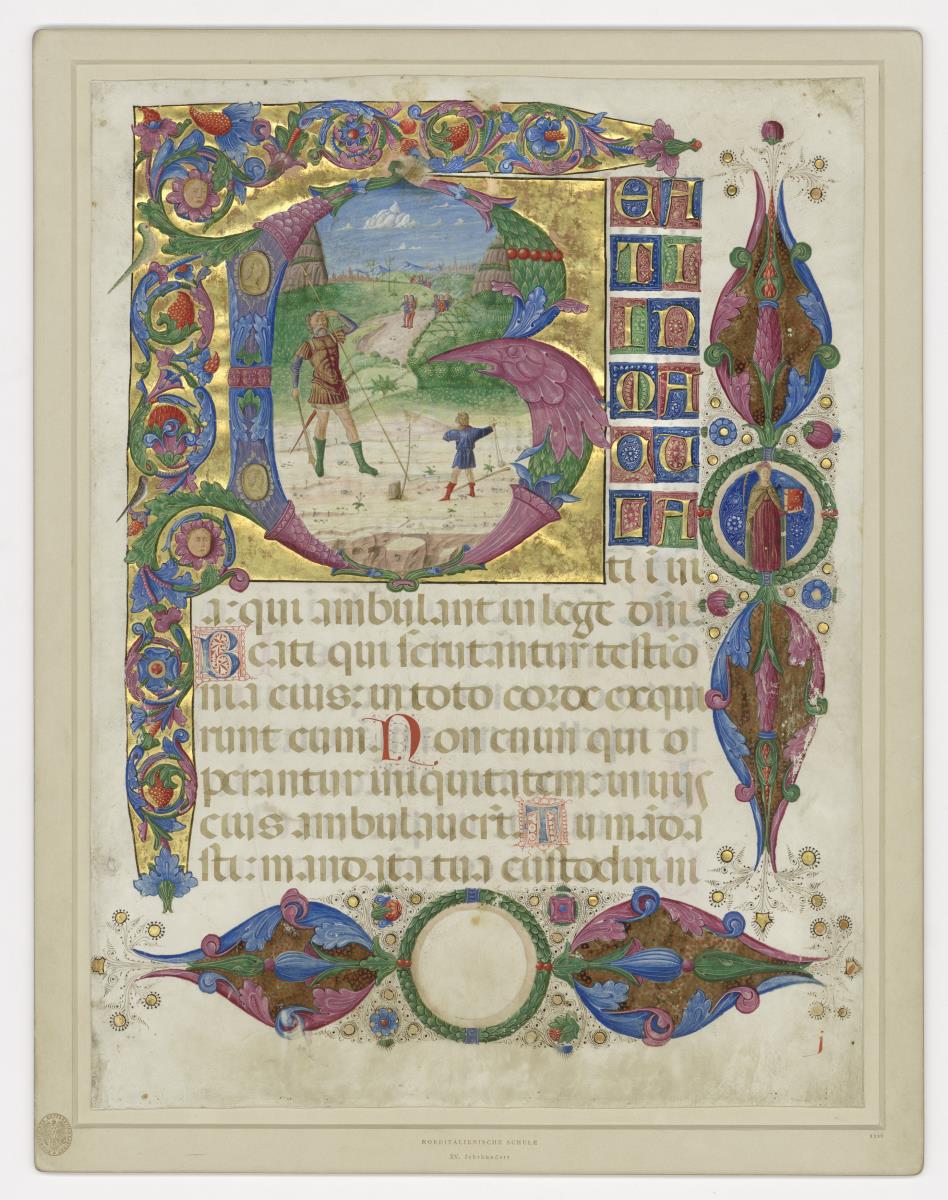 B
EA
TI
IM
MA
CU
LA
ti i ui
a: qui ambulant in lege dñi.
Beati qui scrutantur testiō
nia eius: in toto corde exqui
runt eum. Non enim qui o
perantur iniquitatem: in uijs
eius ambulauerūt. Tu māda
sti: mandata tua custodiri ni
j
NORDITALIENISCHE SCHULE
XV. Jahrhundert